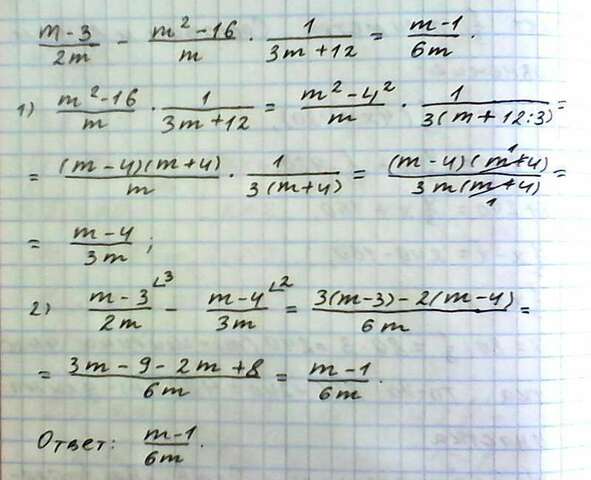 (m-3)/(2m) - (m²-16)/m · 1/(3m+12) = (m-1)/(6m).
1) (m²-16)/m · 1/(3m+12) = (m²-4²)/m · 1/(3(m+12:3)) =
= ((m-4)(m+4))/m · 1/(3(m+4)) = ((m-4)(m+4)¹)/(3m(m+4)₁) =
= (m-4)/(3m);
2) (m-3)/(2m)∠3 - (m-4)/(3m)∠2 = (3(m-3)-2(m-4))/(6m) =
= (3m-9-2m+8)/(6m) = (m-1)/(6m).
Ответ: (m-1)/(6m).